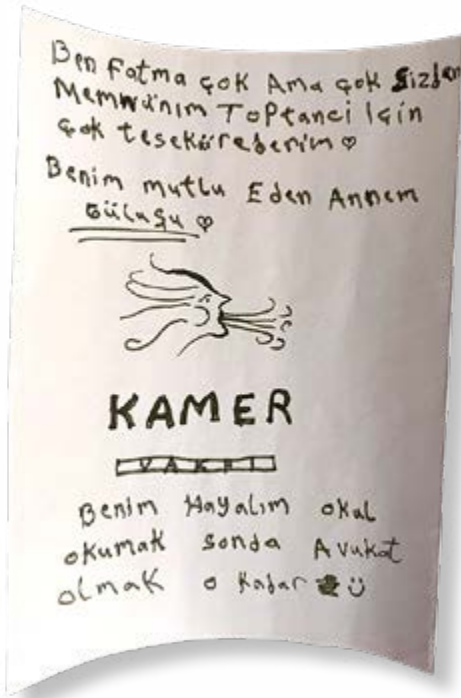 Ben Fatma çok Ama çok sizden
Memnunım Toptanci için
çok teseküređerim ♡
Benim mutlu Eden Annem
Gülüşü ♡
KAMER
VAKFI
Benim Hayalım okal
okumak sonda Avukat
olmak o kadar